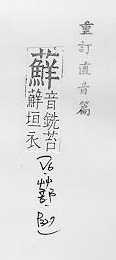 重訂直音篇
蘚
音銑苔
蘚垣衣